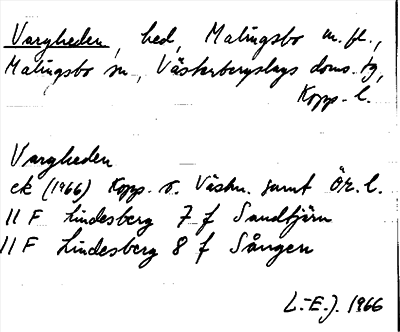 Vargheden, hed, Malingsbo m.fl.,
Malingsbo sn, Västerbergslags doms. tg,
Kopp. l.
Vargheden
ek (1966) Kopp. o. Västm. samt Ör. l.
11 F Lindesberg 7 f Sandtjärn
11 F Lindesberg 8 f Sången
L.-E.J. 1966